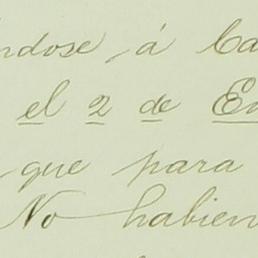 ndose á Ca
el 2 de En
que para
No habien